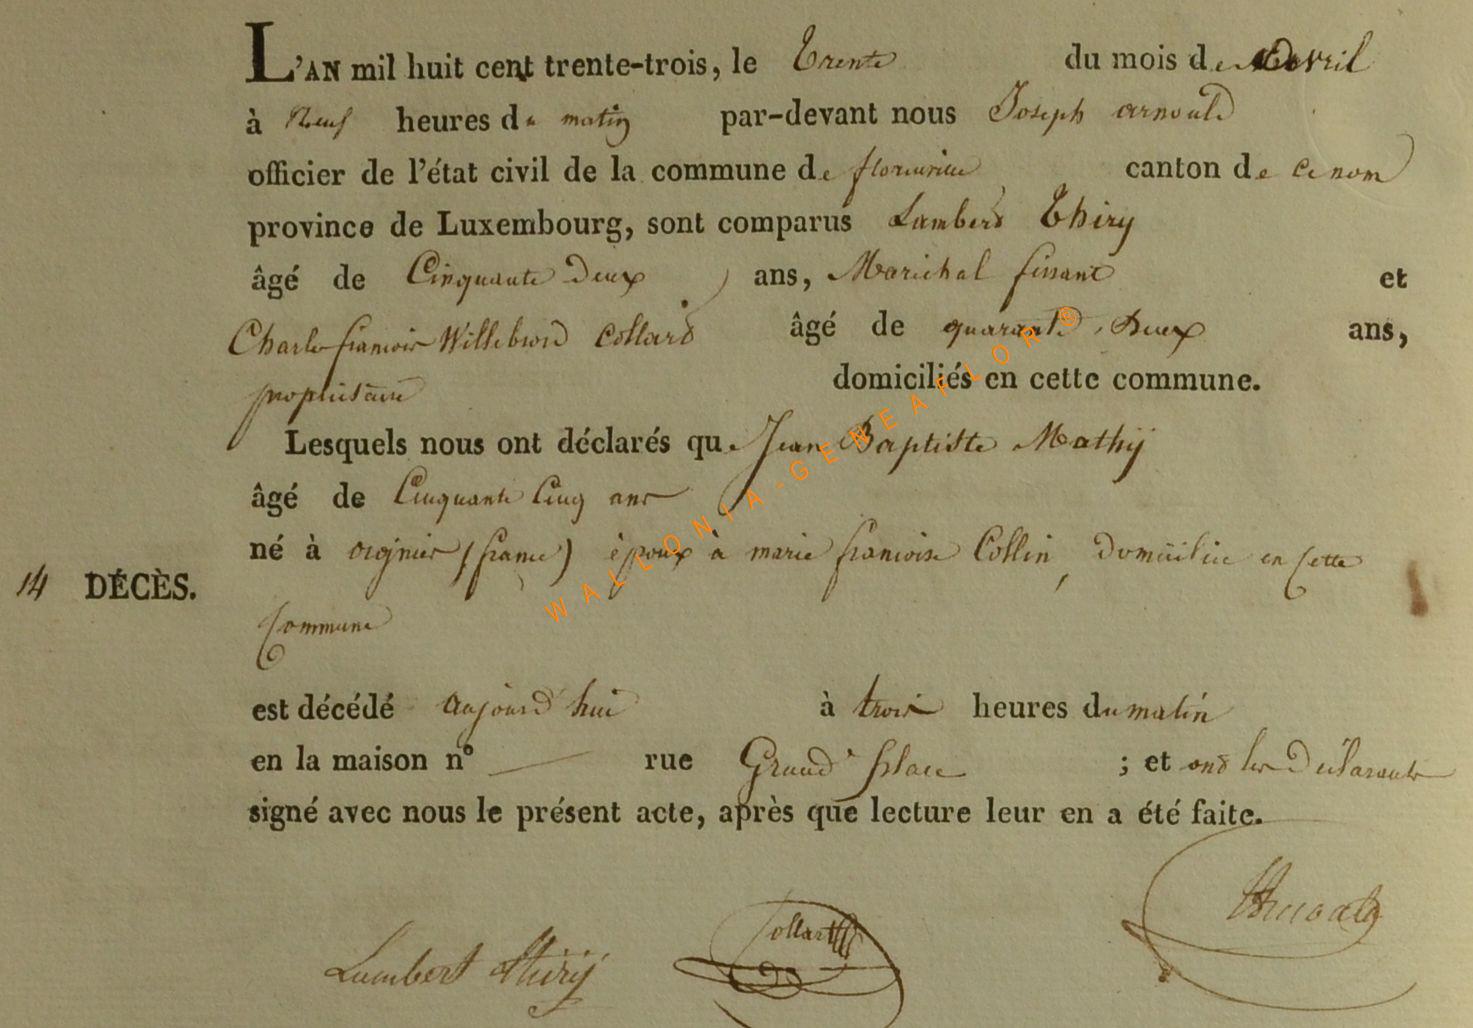 L'AN mil huit cent trente-trois, le Trente du mois de Avril
à Neuf heures du matin par-devant nous Joseph arnould
officier de l'état civil de la commune de florenville canton de ce nom
province de Luxembourg, sont comparus Lambert Thiry
âgé de Cinquante Deux ans, Marichal ferrant et
Charles francois Willebrord Collard âgé de quarante Deux ans,
propriétaire domiciliés en cette commune.
Lesquels nous ont déclarés que Jean Baptiste Mathÿ
âgé de Cinquante Cinq ans
né à (france) époux à marie francoise Collin, Domicilié en Cette
Commune
14 DÉCÈS.
est décédé aujourd'hui à trois heures du matin
en la maison n° — rue Grand place ; et ont les Déclarants
signé avec nous le présent acte, après que lecture leur en a été faite.
Lambert Thirÿ Collart Arnould
WALLONIA-GENEAFLOR ©